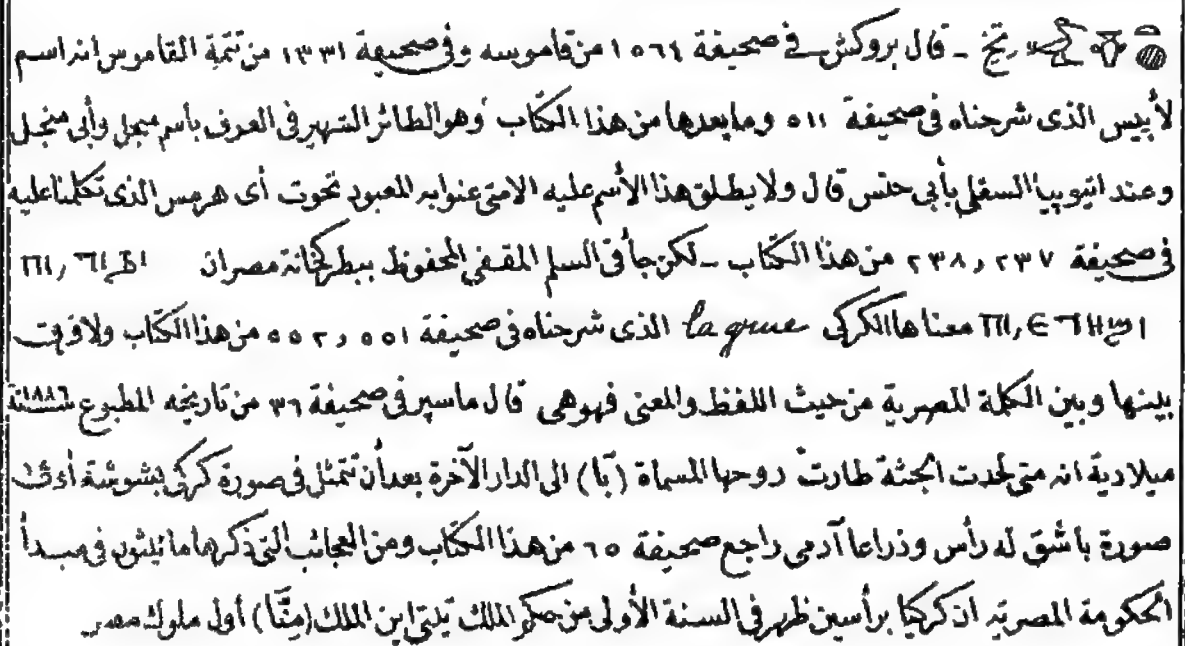 رتخ _ قال بروكش في صحيفة ١٥٦٤ من قاموسه وفى صحيفة ١٣٣١ من تتمة القاموس انه اسم
لأبيس الذى شرحناه فى صحيفة ٥١١ ومابعدها من هذا الكتاب وهو الطائر الشهير فى العرف باسم منجل وأبى منجل
وعند اتيوبيا السفلى بأبى حنس قال ولا يطلق هذا الأسم عليه الا متى عنوا به المعبود تحوت أى هرمس الذى تكلمنا عليه
فى صحيفة ٢٣٧ و ٢٣٨ من هذا الكتاب _ لكن جأ فى السلم المقفى المحفوظ ببطركخانة مصر ان
معناها الكركى la grue الذى شرحناه فى صحيفة ٥٥١ و ٥٥٢ من هذا الكتاب ولا فرق
بينها وبين الكلمة المصرية من حيث اللفظ والمعنى فهو هى قال ماسپر فى صحيفة ٣٦ من تاريخه المطبوع سنة ١٨٨٦
ميلادية انه متى لحدت الجثة طارت روحها المسماة (بَا) الى الدار الآخرة بعد أن تتمثل فى صورة كركى بشوشة أو فى
صورة باشق له رأس وذراعا آدمى راجع صحيفة ٦٥ من هذا الكتاب ومن العجائب التى ذكرها مانيثون فى مبدأ
الحكومة المصرية ان كركيا برأسين ظهر فى السنة الأولى من حكم الملك تيتى ابن الملك (مِنَّا) أول ملوك مصر